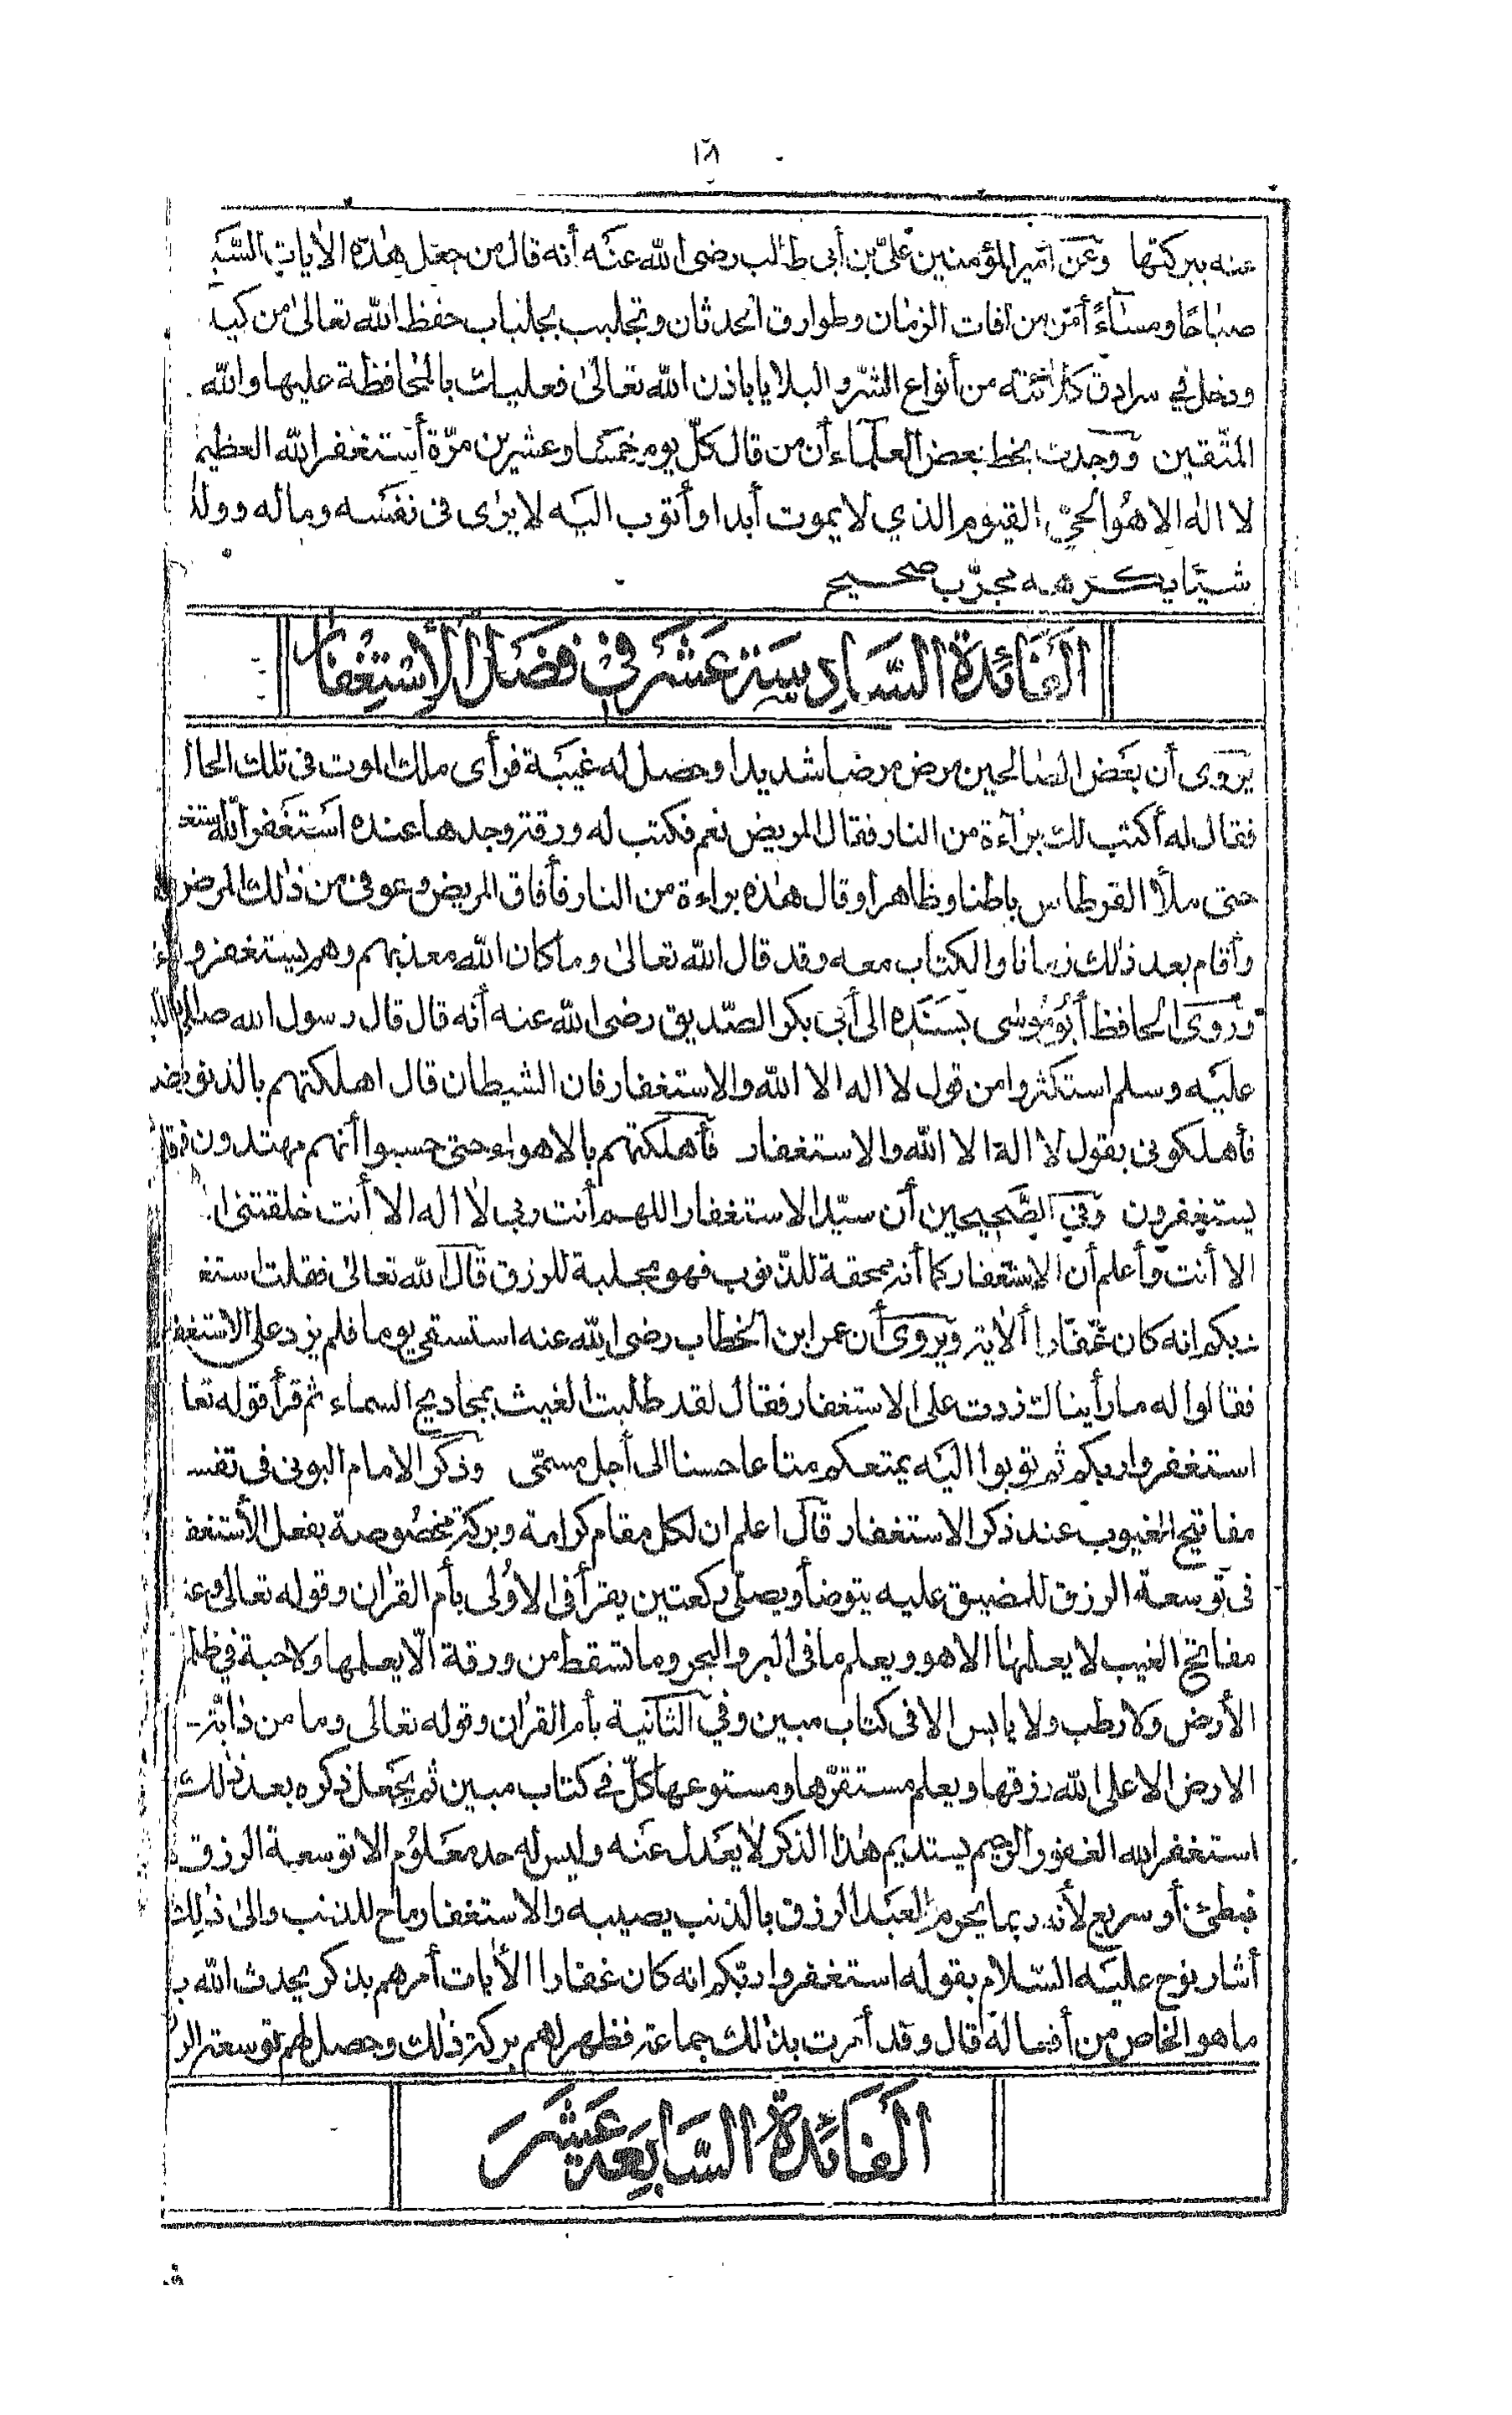 ١٨
عنه ببركتها وعن أمير المؤمنين علىّ بن أبى طالب رضى الله عنه أنه قال من جعل هذه الاٰيات السّبـ
صباحًا ومساءً أمن من اٰفات الزمان وطوارق الحدثان وتجلبب بجلباب حفظ الله تعالىٰ من كيد
ودخل في سرادق كلائته من أنواع الشرّ والبلايا باذن الله تعالىٰ فعليك بالمحافظة عليها والله
المتّقين ووجدت بخط بعض العلماء أن من قال كلّ يوم خمسا وعشرين مرّة أستغفر الله العظيم
لا اله الا هو الحيّ القيوم الذي لا يموت أبدا وأتوب اليه لا يرىٰ فى نفسه وماله وولد
شيئا يكرهه مجرّب صحيح
الفائدة السّادسة عشر في فضل الإستغفار
يروى أن بعض الصالحين مرض مرضا شديدا وحصل له غيبة فرأى ملك الموت فى تلك الحال
فقال له أكتب لك براءة من النار فقال المريض نعم فكتب له ورقة وجدها عنده استغفر الله استغـ
حتى ملأ القرطاس باطنا وظاهرا وقال هذه براءة من النار فأفاق المريض وعوفى من ذلك المرض
وأقام بعد ذلك زمانا والكتاب معه وقد قال الله تعالىٰ وما كان الله معذبهم وهم يستغفرو
وروى الحافظ أبو موسى بسنده الى أبى بكر الصّديق رضى الله عنه أنه قال قال رسول الله صلى الله
عليه وسلم استكثروا من قول لا اله الا الله والاستغفار فان الشيطان قال اهلكتهم بالذنوب
فأهلكونى بقول لا اله الا الله والاستغفار فأهلكتهم بالاهواء حتى حسبوا أنهم مهتدون فلا
يستغفرون وفي الصّحيحين أن سيّد الاستغفار اللهم أنت ربى لا اله الا أنت خلقتنى
الا أنت وأعلم أن الاستغفار كما أنه محقة للذّنوب فهو مجلبة للرزق قال الله تعالىٰ فقلت استغـ
ربكم انه كان غفّارا الاٰية ويروى أن عمر ابن الخطاب رضى الله عنه استسقى يوما فلم يزد على الاستغفـ
فقالوا له ما رأيناك زدت على الاستغفار فقال لقد طلبت الغيث بمجاديح السماء ثم قرأ قوله تعا
استغفروا ربكم ثم توبوا اليه يمتعكم متاعا حسنا الى أجل مسمّى وذكر الامام البونى فى تفسـ
مفاتيح الغيوب عند ذكر الاستغفار قال اعلم ان لكل مقام كرامة وبركة مخصوصة بفعل الأستغفـ
فى توسعة الرزق للمضيق عليه يتوضأ ويصلى ركعتين يقرأ فى الاولى بأم القراٰن وقوله تعالىٰ وعنـ
مفاتح الغيب لا يعلمها الا هو ويعلم ما فى البر والبحر وما تسقط من ورقة الّا يعلمها ولا حبة في ظلم
الأرض ولا رطب ولا يابس الا فى كتاب مبين وفي الثانية بأم القراٰن وقوله تعالى وما من دابّة
الارض الا على الله رزقها ويعلم مستقرّها ومستوعها كلّ في كتاب مبين ثم يجعل ذكره بعد ذلك
استغفر الله الغفور الرحيم يستديم هذا الذكر لا يعدل عنه وليس له حد معلوم الا توسعة الرزق
فبطئ أو سريع لأنه ربما يحرم العبد الرزق بالذنب يصيبه والاستغفار ماح للذنب والىٰ ذلك
أشار نوح عليه السّلام بقوله استغفروا ربّكم انه كان غفارا الأيات أمرهم بذكر يحدث الله بـ
ما هو الخاص من أفعاله قال وقد أمرت بذلك جماعة فظهر لهم بركة ذلك وحصل لهم توسعة الر
الفائدة السّابعة عشر
فى